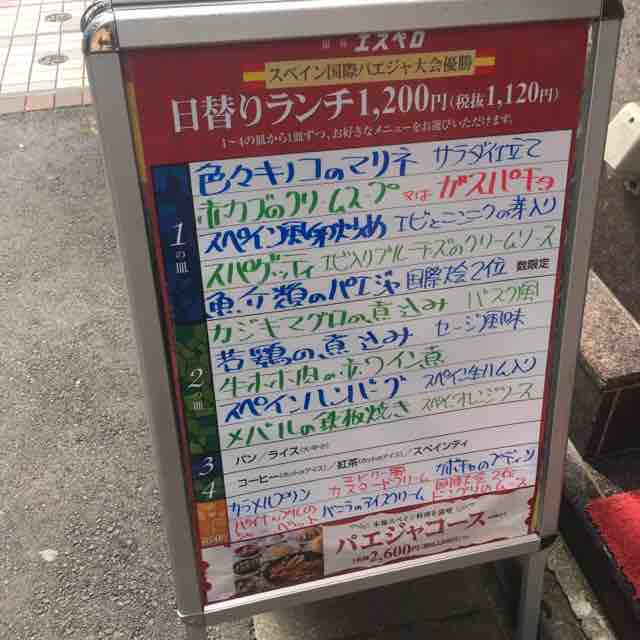 銀座 エスペロ
スペイン国際パエジャ大会優勝
日替りランチ1,200円(税抜1,120円)
1〜4の皿から1皿ずつ、お好きなメニューをお選びいただけます。
1の皿
色々キノコのマリネ サラダ仕立て
赤カブのクリームスープ 又は ガスパチョ
スペイン風卵炒め エビとニンニクの芽入り
スパゲッティ エビ入りブルーチーズのクリームソース
魚介類のパエジャ 国際大会2位 数限定
2の皿
カジキマグロの煮込み バスク風
若鶏の煮込み セージ風味
牛ホホ肉の赤ワイン煮
スペインハンバーグ スペイン生ハム入り
メバルの鉄板焼き スペインオレンジソース
3 パン/ライス
4 コーヒー(ホットorアイス)/紅茶(ホットorアイス)/スペインティ
カラメルプリン
カスタードクリーム
バニラのアイスクリーム
パエジャコース
2,600円